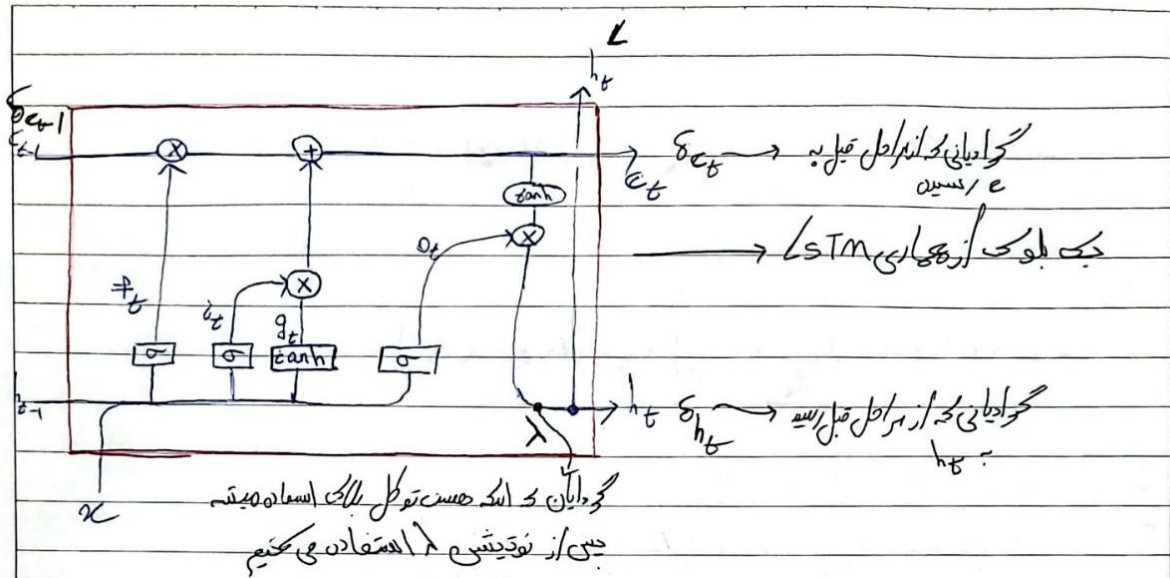 L
h_t
δ_{c_{t-1}}
c_{t-1}
×
+
c_t
δ_{c_t} → گرادیانی که از مراحل قبل به
c رسیده
tanh
×
o_t
→ یک بلوک از معماری LSTM
f_t
i_t
×
g_t
σ
σ
tanh
σ
h_{t-1}
λ
h_t
δ_{h_t} → گرادیانی که از مراحل قبل رسیده
به h_t
x
گرادیان که اینکه هست تو کل بلاک استفاده میشه
پس از نوتیشن λ استفاده می کنیم